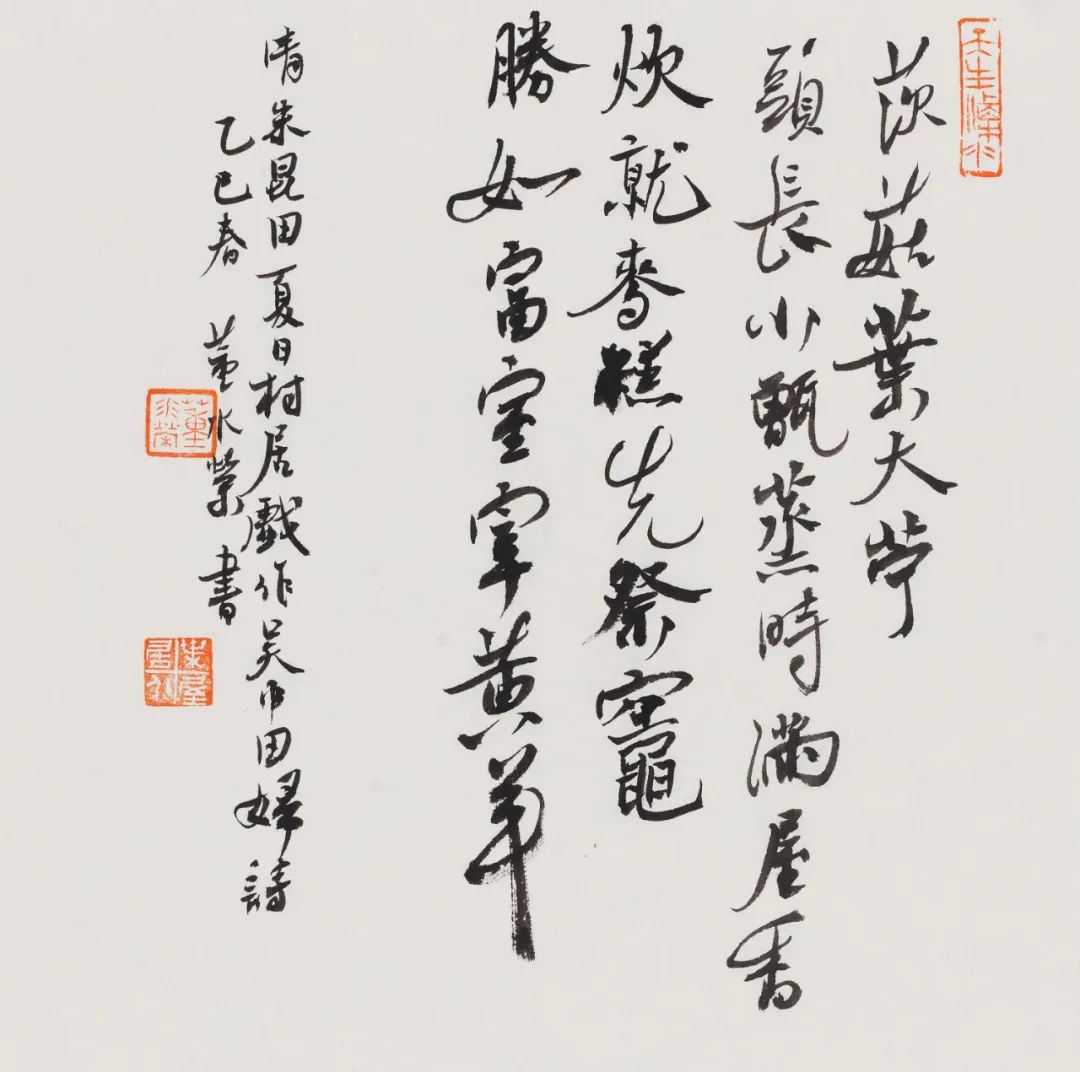 茨菇葉大苧
頭長小甑蒸時滿屋香
炊就麥糕先祭竈
勝如富室宰黃羊
清朱昆田夏日村居戲作吴中田婦詩
乙巳春 董水榮書
董水榮